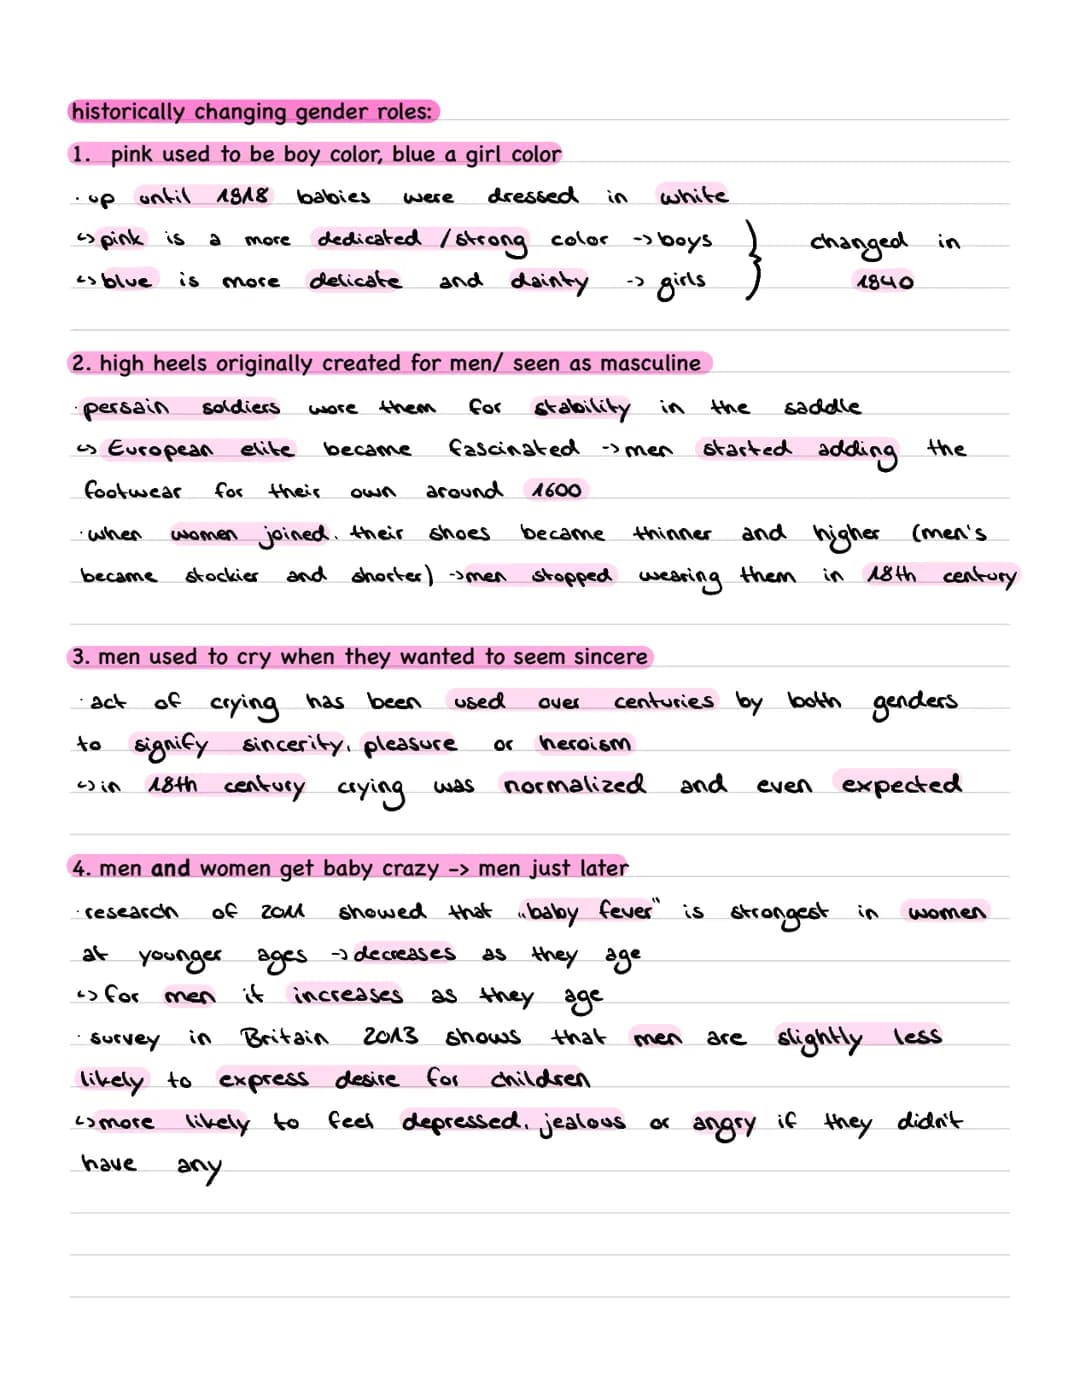 historically changing gender roles:
1. pink used to be boy color, blue a girl color
· up until 1918 babies were dressed in white
↳ pink is a more dedicated / strong color -> boys } changed in
↳ blue is more delicate and dainty -> girls 1840
2. high heels originally created for men/ seen as masculine
· persain soldiers wore them for stability in the saddle
↳ European elite became fascinated -> men started adding the
footwear for their own around 1600
· when women joined, their shoes became thinner and higher (men's
became stockier and shorter) -> men stopped wearing them in 18th century
3. men used to cry when they wanted to seem sincere
· act of crying has been used over centuries by both genders
to signify sincerity, pleasure or heroism
↳ in 18th century crying was normalized and even expected
4. men and women get baby crazy -> men just later
· research of 2011 showed that „baby fever" is strongest in women
at younger ages -> decreases as they age
↳ for men it increases as they age
· survey in Britain 2013 shows that men are slightly less
likely to express desire for children
↳ more likely to feel depressed, jealous or angry if they didn't
have any